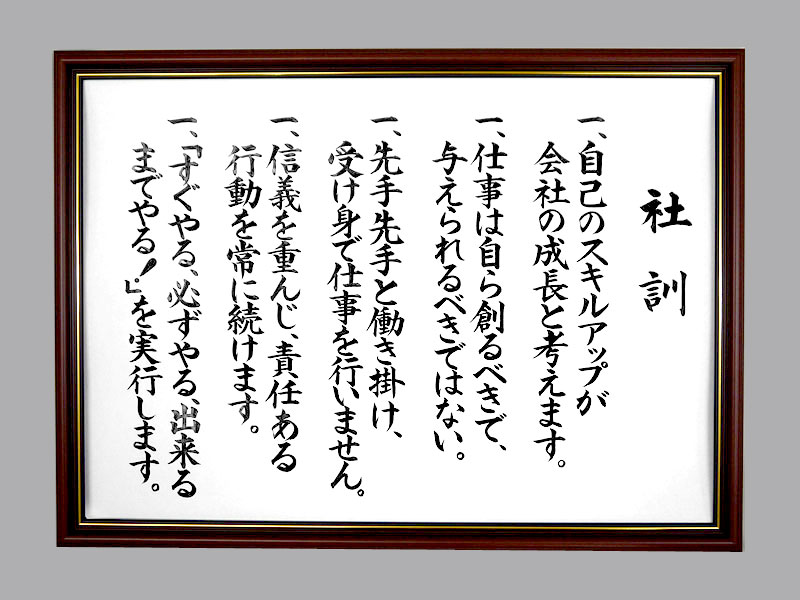 社訓
一、自己のスキルアップが
会社の成長と考えます。
一、仕事は自ら創るべきで、
与えられるべきではない。
一、先手先手と働き掛け、
受け身で仕事を行いません。
一、信義を重んじ、責任ある
行動を常に続けます。
一、「すぐやる、必ずやる、出来る
までやる！」を実行します。